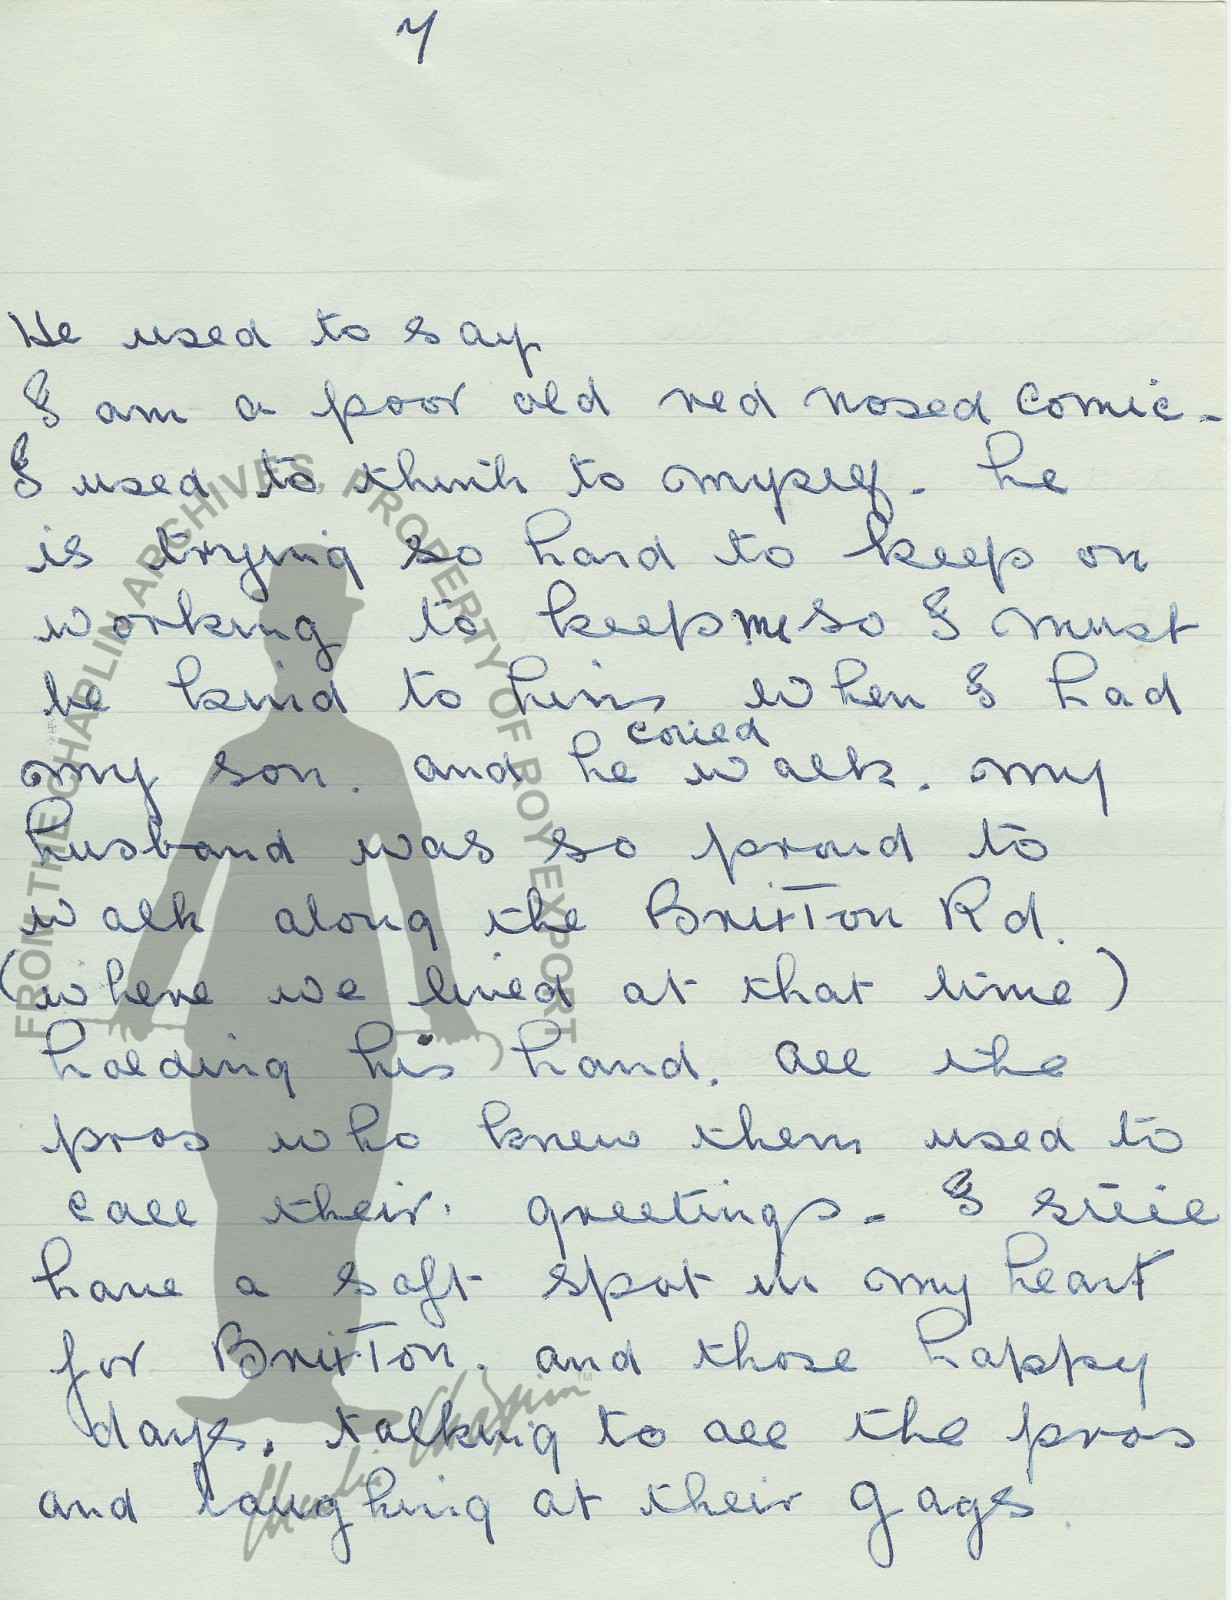 7
He used to say
I am a poor old red nosed comic -
I used to think to myself. he
is trying so hard to keep on
working to keep me so I must
be kind to him when I had
my son. and he could walk. my
husband was so proud to
walk along the Brixton Rd.
(where we lived at that time)
holding his hand. all the
pros who knew them used to
call their. greetings - I still
have a soft spot in my heart
for Brixton. and those happy
days. talking to all the pros
and laughing at their gags.
FROM THE CHAPLIN ARCHIVES, PROPERTY OF ROY EXPORT
Charlie Chaplin TM